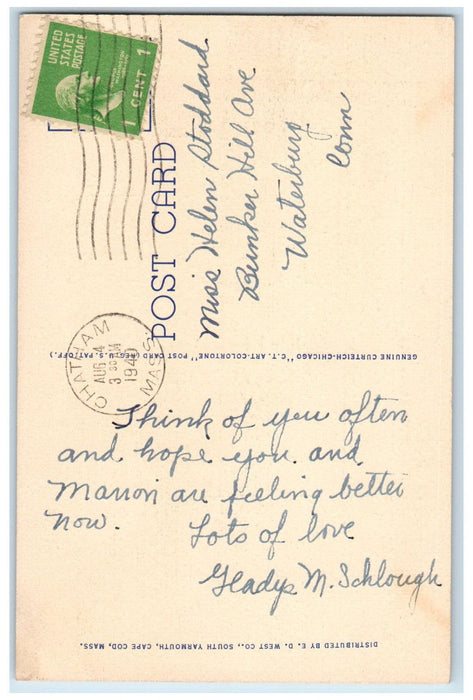 UNITED
STATES
POSTAGE
1 CENT 1
POST CARD
Miss Helen Stoddard
Bunker Hill Ave
Waterbury
Conn
GENUINE CURTEICH-CHICAGO "C.T. ART-COLORTONE" POST CARD (REG. U.S. PAT. OFF.)
CHATHAM
AUG 4
3 30 PM
1940
MASS.
Think of you often
and hope you and
Marion are feeling better
now.
Lots of love
Gladys M. Schlough
DISTRIBUTED BY E. D. WEST CO., SOUTH YARMOUTH, CAPE COD, MASS.